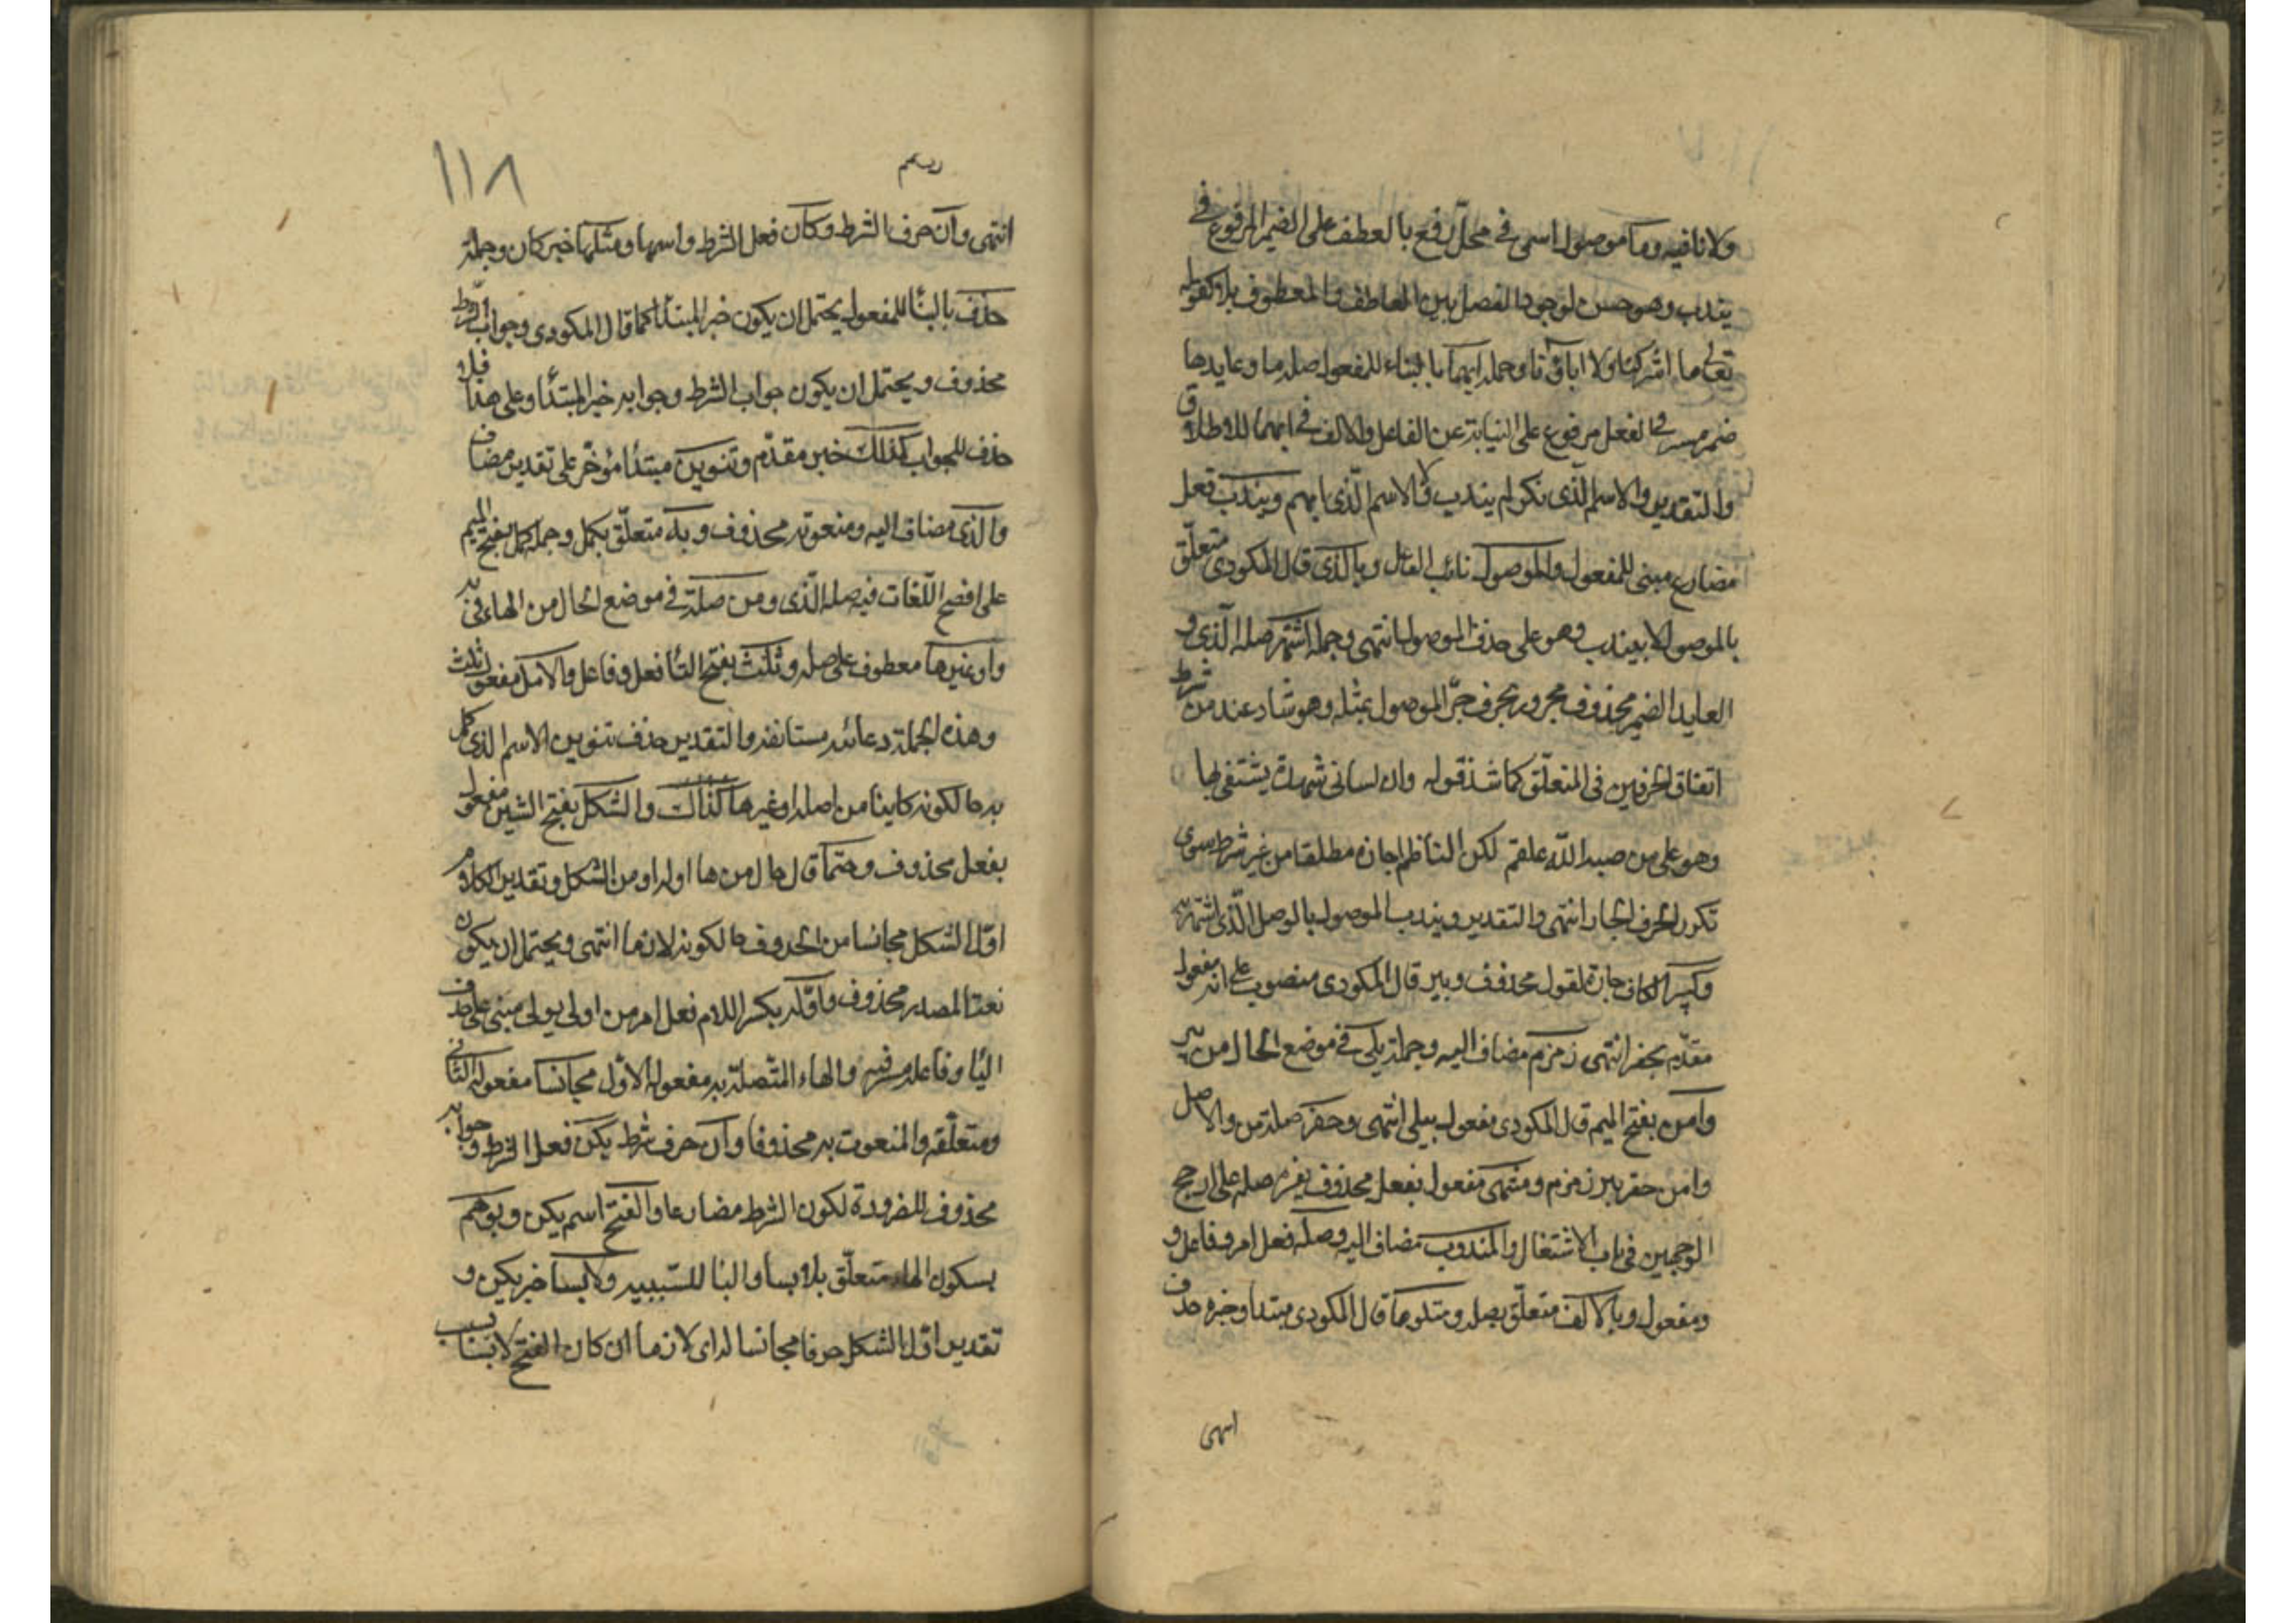 ولا نافيه وما موصول اسمى فى محل رفع بالعطف على الضمير المرفوع فى
يندب وهو حسن لوجود الفصل بين العاطف والمعطوف بلا كقوله
تعالى ما اشركنا ولا اباؤنا وجملة ابهما بالبناء للمفعول صلة ما وعايدها
ضمير مستتر فى الفعل مرفوع على النيابة عن الفاعل والالف فى ابهما للاطلاق
والتقدير والاسم الذى نكر لم يندب ولا الاسم الذى ابهم ويندب فعل
مضارع مبنى للمفعول والموصول نائب الفاعل وبالذى قال المكودى متعلق
بالموصول لا بيندب وهو على حذف الموصول انتهى وجملة اشتهر صلة الذى و
العايد الضمير محذوف مجرور بحرف جر الموصول بمثله وهو شاذ عند من شرط
اتفاق الحرفين فى المتعلق كما شذ قوله وان لسانى شهدة يشتفى بها
وهو على من صبه الله علقم لكن الناظم اجازه مطلقا من غير شرط سوى
تكرر الحرف الجار انتهى والتقدير ويندب الموصول بالوصل الذى اشتهر به
وكبئر الكاف جارة لقول محذوف وبير قال المكودى منصوب على انه مفعول
مقدم بحفر انتهى زمزم مضاف اليه وجملة يلى فى موضع الحال من بير
وامن بفتح الميم قال المكودى مفعول بيلى انتهى وحفر صلة من والاصل
وامن حفر بير زمزم ومنتهى مفعول بفعل محذوف يفسره صله على ارجح
الوجهين فى باب الاشتغال والمندوب مضاف اليه وصله فعل امر وفاعل و
ومفعول وبالالف متعلق بصله ومتلوها قال المكودى مبتدا وخبره حذف
انتهى
١١٨
انتهى وان حرف الشرط وكان فعل الشرط واسمها ومثلها خبر كان وجملة
حذف بالبنا للمفعول يحتمل ان يكون خبر المبتدا كما قال المكودى وجواب الشرط
محذوف ويحتمل ان يكون جواب الشرط وجوابه خبر المبتدا وعلى هذا
حذف للجواب كذلك خبر مقدم وتنوين مبتدا مؤخر على تقدير مضاف
والذى مضاف اليه ومنعوته محذوف وبه متعلق بكمل وجملة كمل بفتح الميم
على افصح اللغات فيه صلة الذى ومن صلة فى موضع الحال من الهاء فى به
واو غيرها معطوف على صلة ونلت بفتح التا فعل وفاعل والامل مفعول نلت
وهذه الجملة دعائية مستانفة والتقدير حذف تنوين الاسم الذى كمل
به حالكونه كاينا من صلة او غيرها كذلك والشكل بفتح الشين مفعول
بفعل محذوف وحتما قال حال من ها اوله او من الشكل وتقدير الكلام
اول الشكل مجانسا من الحروف حالكونه لازما انتهى ويحتمل ان يكون
نعتا لمصدر محذوف واوله بكسر اللام فعل امر من اولى يولى مبنى على حذف
اليا وفاعله مستتر فيه والهاء المتصلة به مفعوله الاول مجانسا مفعوله الثانى
ومتعلقه والمنعوت به محذوفا وان حرف شرط يكن فعل الشرط وجوابه
محذوف للضرورة لكون الشرط مضارعا والفتح اسم يكن وبوهم
بسكون الهاء متعلق بلابسا والبا للسببيه ولابسا خبر يكن و
تقدير اول الشكل حرفا مجانسا له اى لازما ان كان الفتح لابسا بسبب